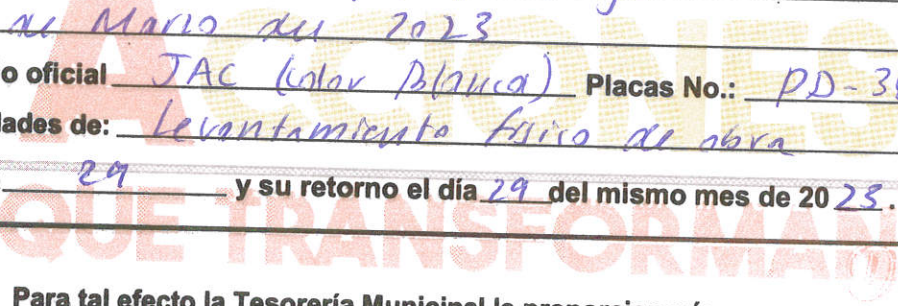 de Marzo del 2023
o oficial JAC (color Blanca) Placas No.: PD-3
dades de: Levantamiento físico de obra
29 y su retorno el día 29 del mismo mes de 2023.
ACCIONES
QUE TRANSFORMAN
Para tal efecto la Tesorería Municipal le